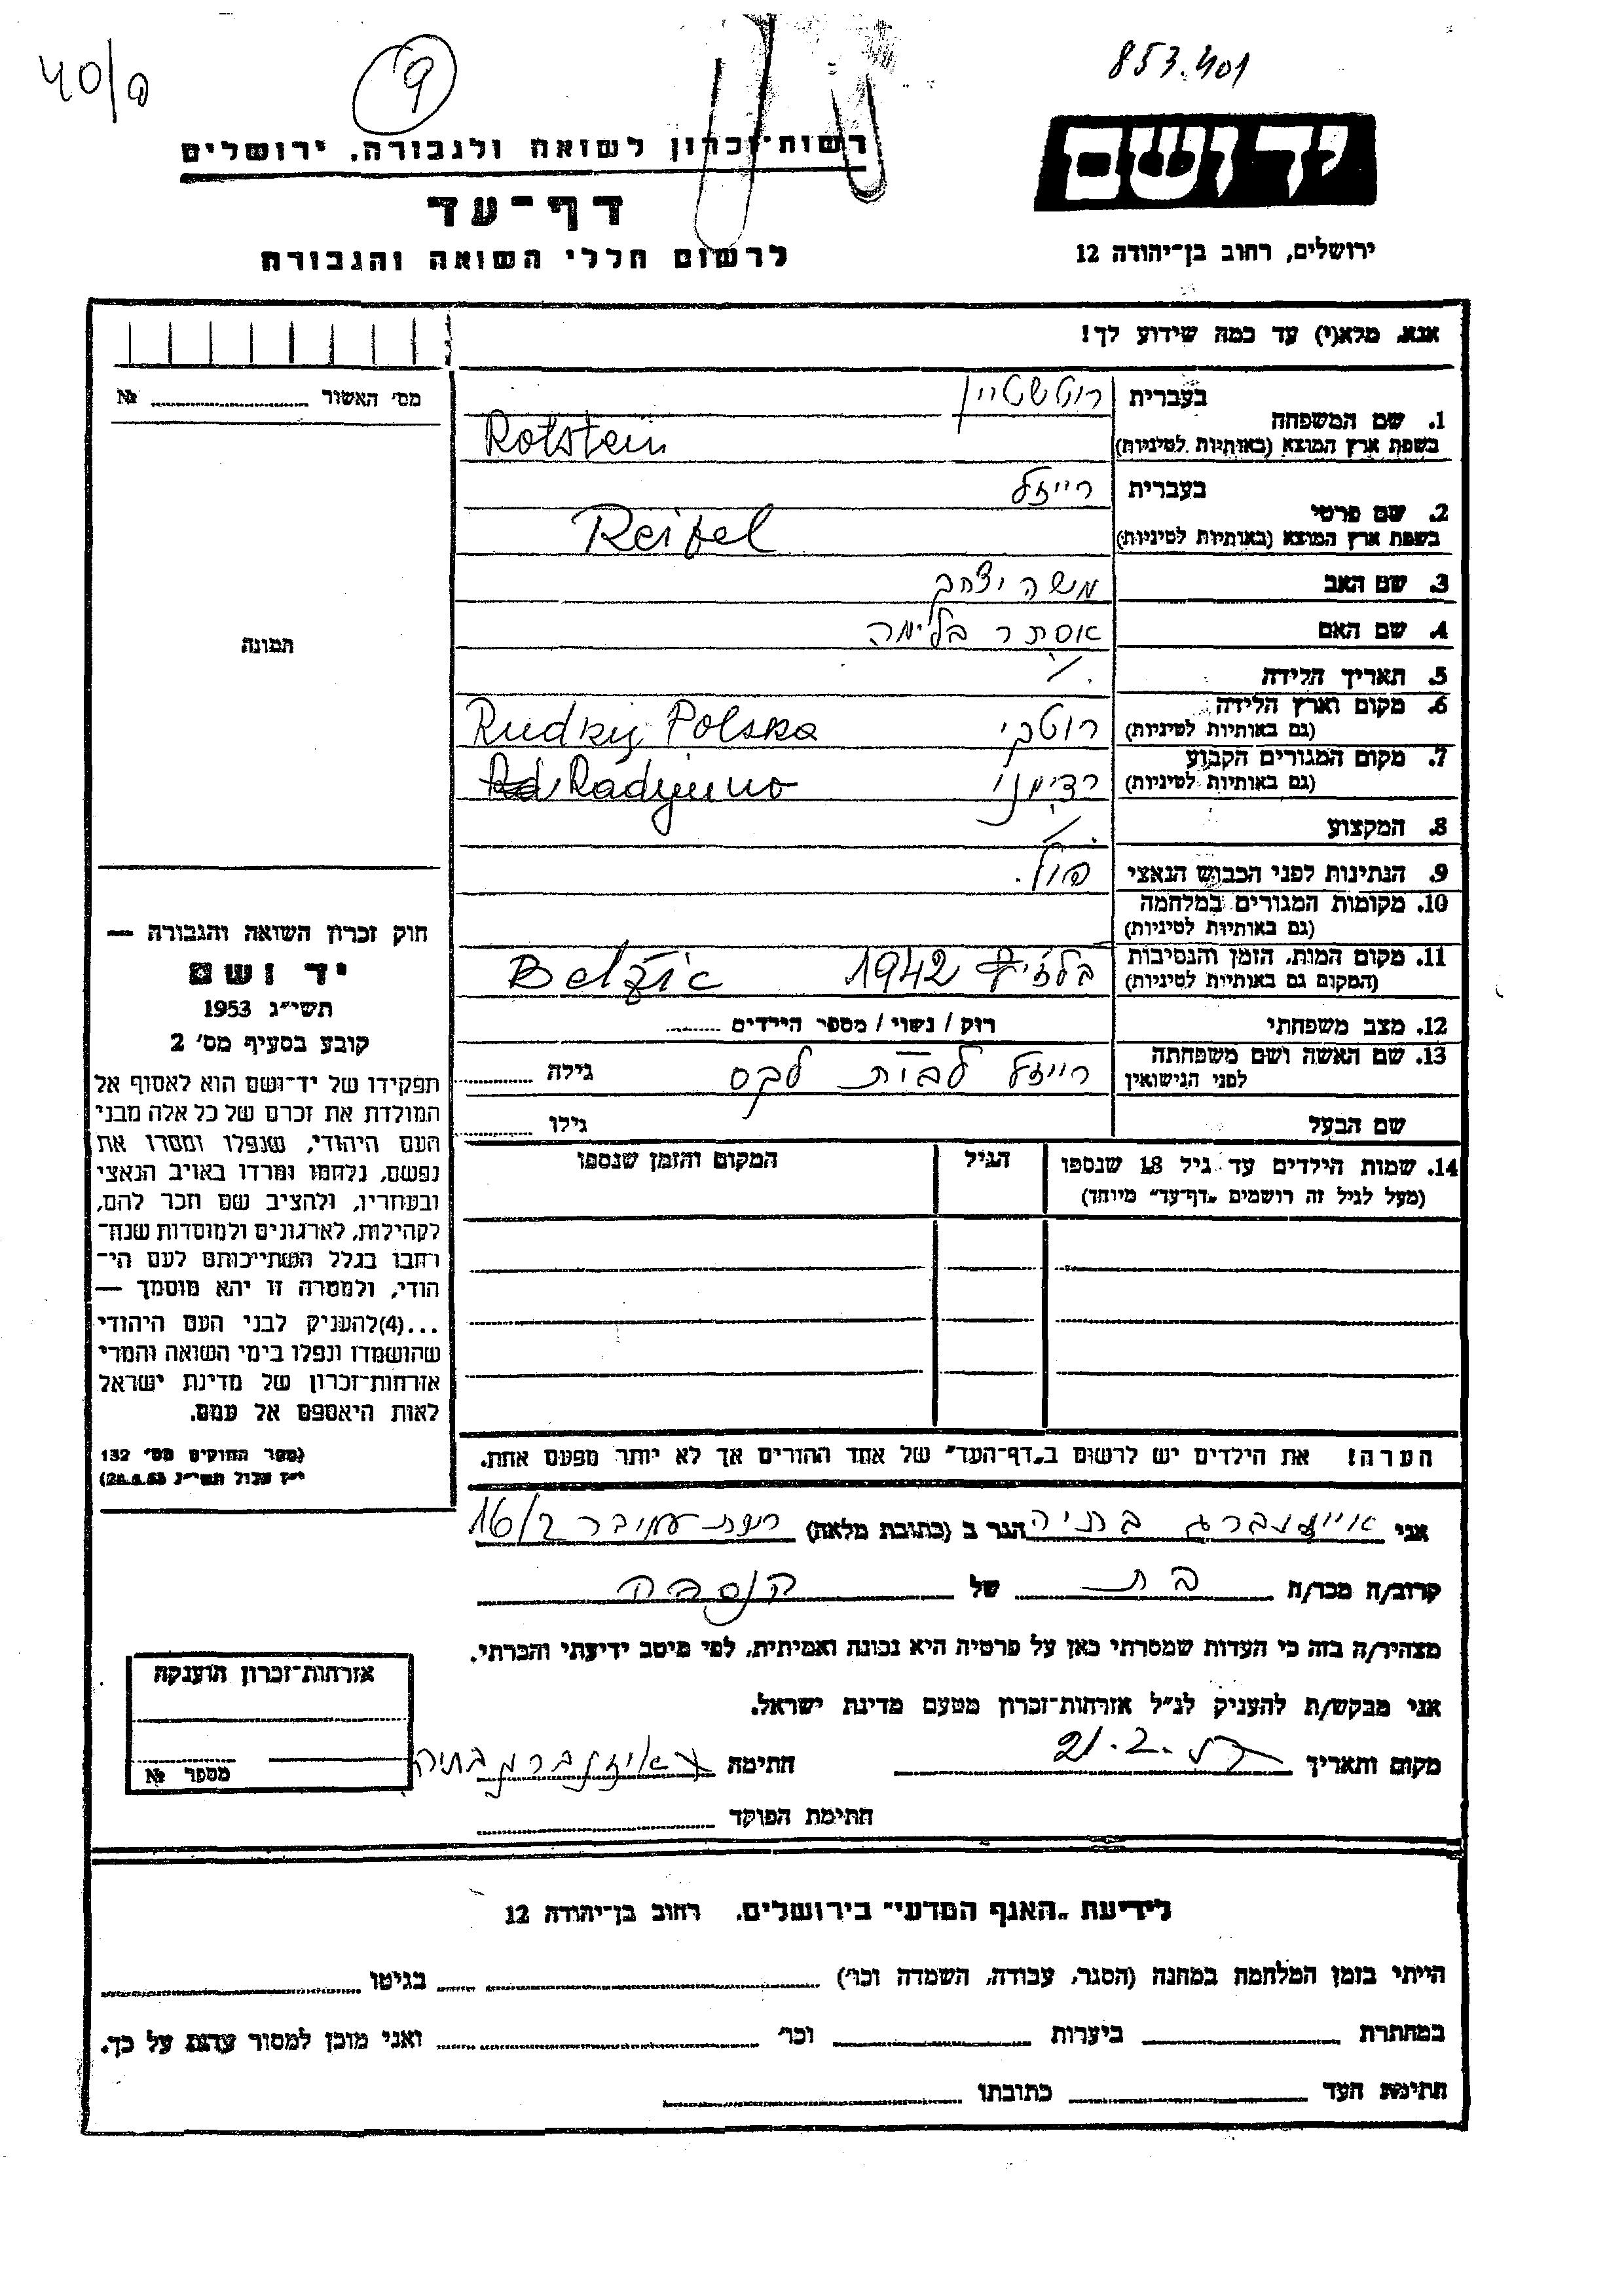 40/9
9
853.401
יד ושם
ירושלים, רחוב בן־יהודה 12
רשות־זכרון לשואה ולגבורה. ירושלים
דף־עד
לרשום חללי השואה והגבורה
אנא, מלא(י) עד כמה שידוע לך!
מס' האשור № 
1. שם המשפחה
בעברית רוטשטיין
בשפת ארץ המוצא (באותיות לטיניות) Rotstein
2. שם פרטי
בעברית רייזל
בשפת ארץ המוצא (באותיות לטיניות)
3. שם האב משה יצחק
4. שם האם אסתר בלימה
5. תאריך הלידה
6. מקום וארץ הלידה
(גם באותיות לטיניות) Polska
7. מקום המגורים הקבוע
(גם באותיות לטיניות) Radymno
8. המקצוע
9. הנתינות לפני הכבוש הנאצי פול.
10. מקומות המגורים במלחמה
(גם באותיות לטיניות)
11. מקום המות, הזמן והנסיבות
(המקום גם באותיות לטיניות) 1942
12. מצב משפחתי רוק / נשוי / מספר הילדים
13. שם האשה ושם משפחתה
לפני הנישואין רייזל לבית לקס גילה
שם הבעל גילו
14. שמות הילדים עד גיל 18 שנספו
(מעל לגיל זה רושמים „דף־עד" מיוחד)
הגיל
המקום והזמן שנספו
תמונה
חוק זכרון השואה והגבורה —
יד ושם
תשי"ג 1953
קובע בסעיף מס' 2
תפקידו של יד־ושם הוא לאסוף אל
המולדת את זכרם של כל אלה מבני
העם היהודי, שנפלו ומסרו את
נפשם, נלחמו ומרדו באויב הנאצי
ובעוזריו, ולהציב שם וזכר להם,
לקהילות, לארגונים ולמוסדות שנח־
רבו בגלל השתייכותם לעם הי־
הודי, ולמטרה זו יהא מוסמך —
...(4) להעניק לבני העם היהודי
שהושמדו ונפלו בימי השואה והמרי
אזרחות־זכרון של מדינת ישראל
לאות היאספם אל עמם.
(ספר החוקים מס' 132
הערה! את הילדים יש לרשום ב„דף־העד" של אחד ההורים אך לא יותר מפעם אחת.
אני בתיה הגר ב (כתובת מלאה) 16/2
קרוב/ה מכר/ה בת של
מצהיר/ה בזה כי העדות שמסרתי כאן על פרטיה היא נכונה ואמיתית, לפי מיטב ידיעתי והכרתי.
אני מבקש/ת להעניק לנ"ל אזרחות־זכרון מטעם מדינת ישראל.
מקום ותאריך 21.2. חתימה בתיה
חתימת הפוקד
אזרחות־זכרון הוענקה
מספר №
לידיעת „האגף המדעי" בירושלים. רחוב בן־יהודה 12
הייתי בזמן המלחמה במחנה (הסגר, עבודה, השמדה וכו') בגיטו
במחתרת ביערות וכו' ואני מוכן למסור עדות על כך.
חתימת העד כתובתו